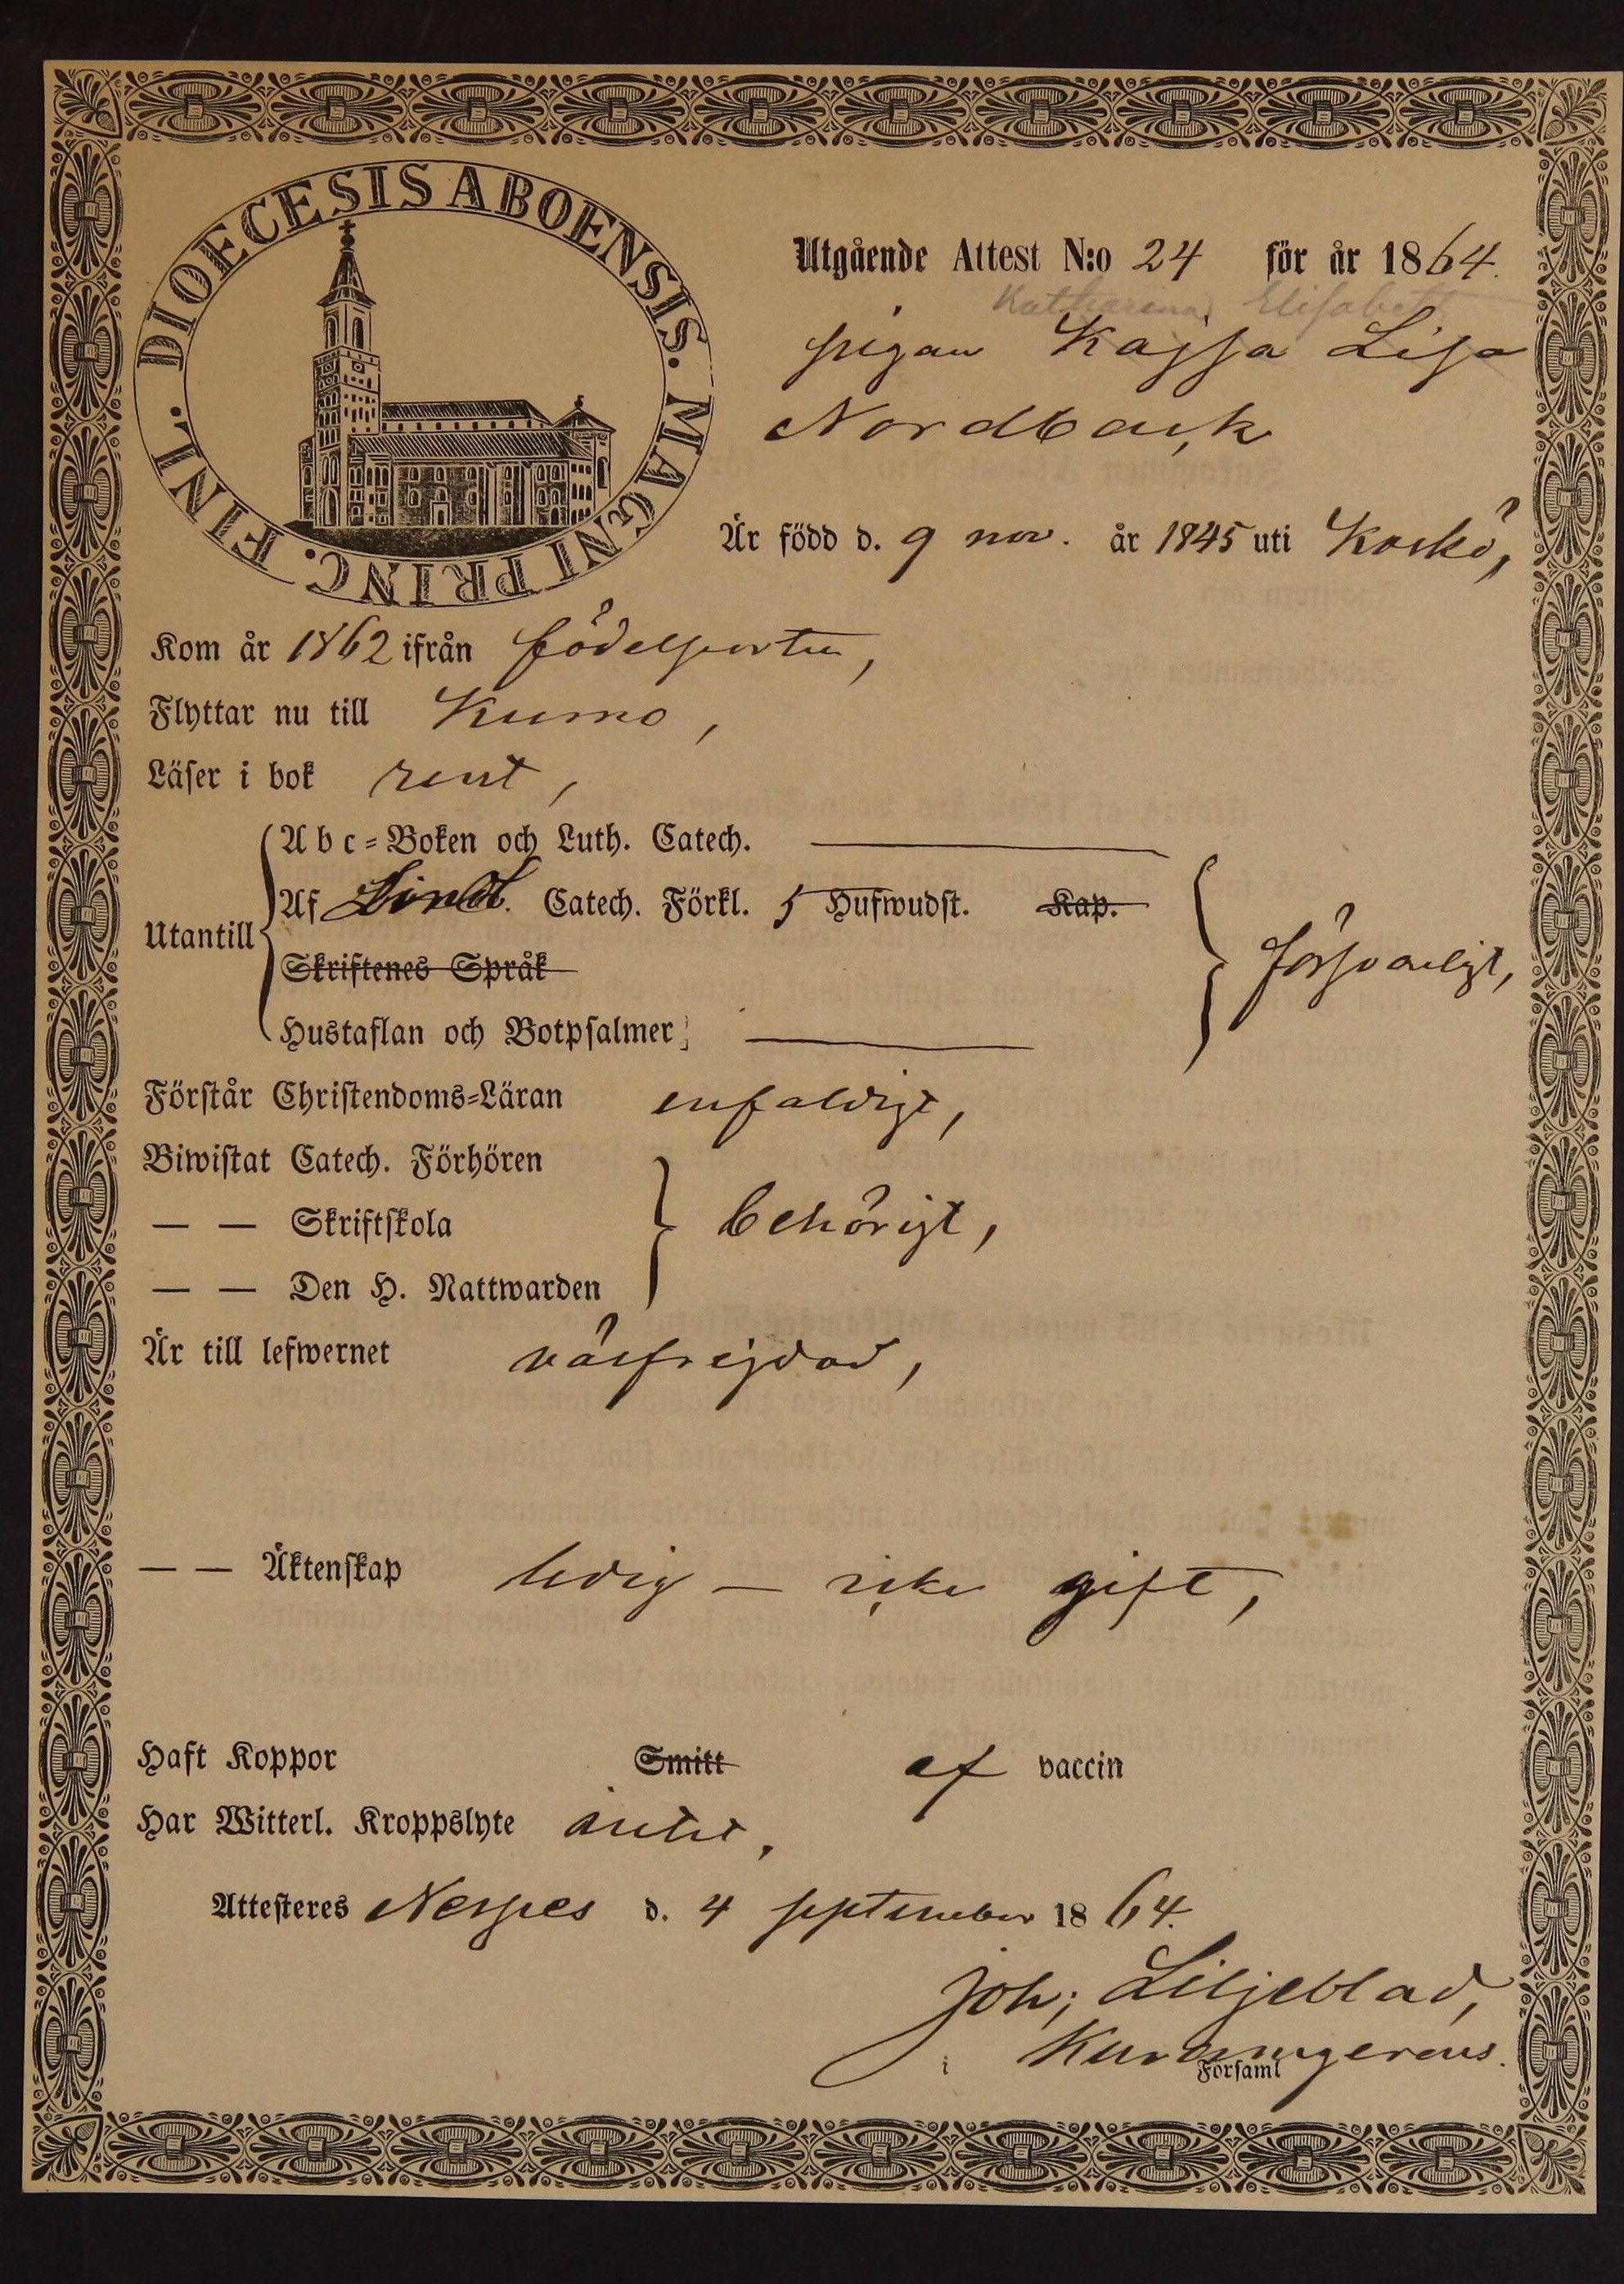 DIOECESIS ABOENSIS. MAGNI PRINC. FINL.
Utgående Attest N:o 24 för år 1864.
Katharina Elisabeth
pigan Kajsa Lisa
Nordback
Är född d. 9 nov. år 1845 uti Kaskö,
Kom år 1862 ifrån födelseorten,
Flyttar nu till Kumo,
Läser i bok rent,
Utantill
Abc-Boken och Luth. Catech.
Af Catech. Förkl. 5 Hufwudst. Kap.
Skriftenes Språk
Hustaflan och Botpsalmer
försvarligt,
Förstår Christendoms-Läran enfaldigt,
Biwistat Catech. Förhören
— — Skriftskola behörigt,
— — Den H. Nattwarden
Är till lefwernet välfrejdad,
— — Äktenskap ledig — icke gift,
Haft Koppor Smitt af vaccin
Har Witterl. Kroppslyte intet,
Attesteres Nerpes d. 4 september 1864.
Joh; Liljeblad,
i Församl